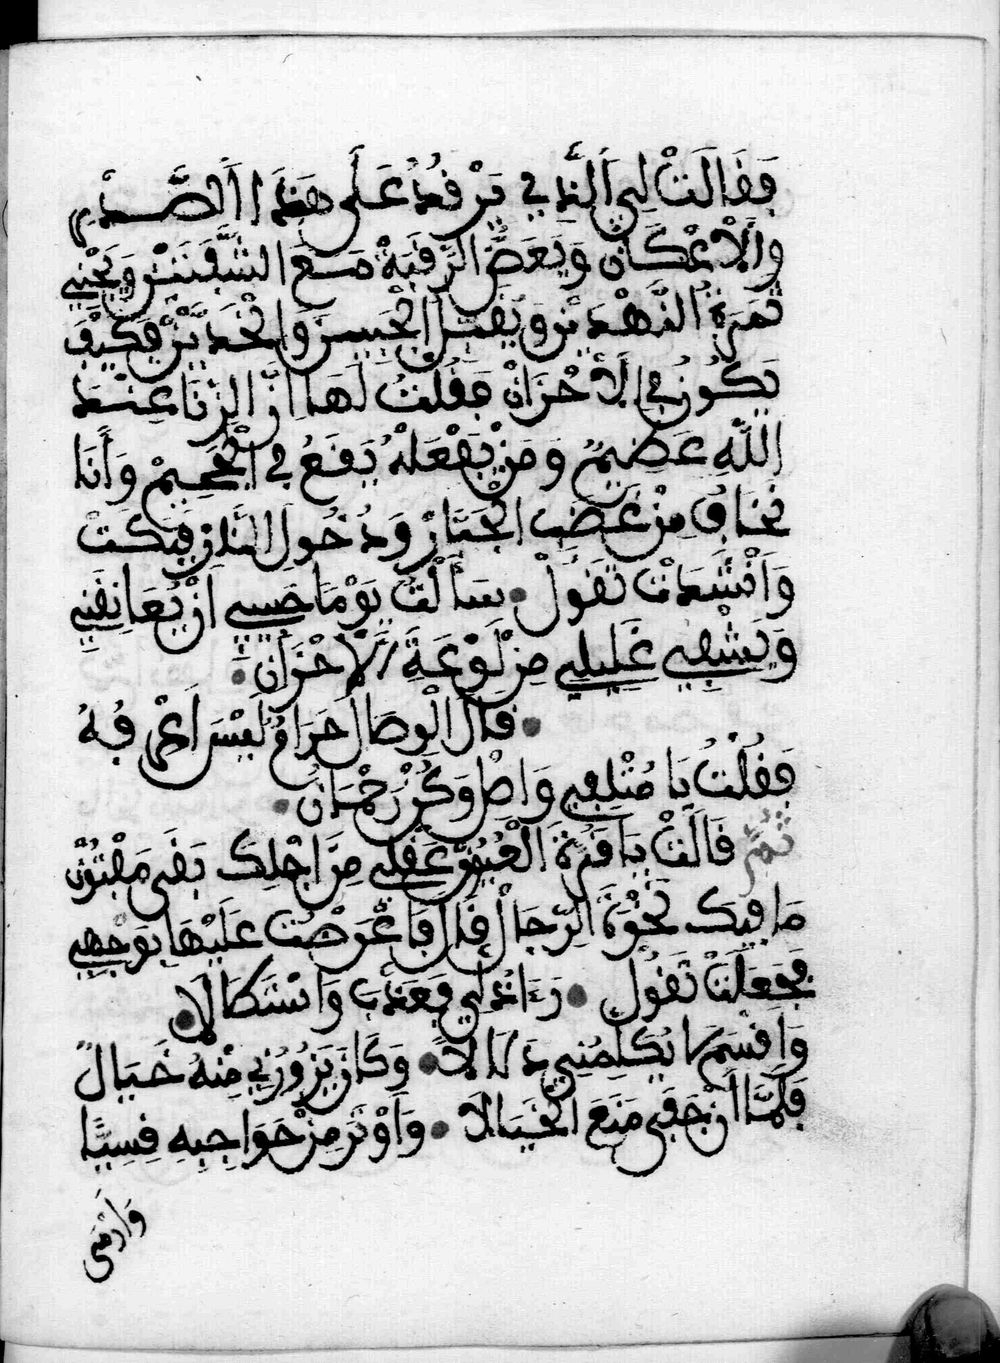 فقالت لي الذي ترقد على هذا الصدر
والاعكان وتعض الرقبة مع الشفتين وتجني
ثمرة النهدين وتقبل الجبين والخدين فكيف
تكون في الاحزان فقلت لها ان الزنا عند
الله عضيم ومن يفعله يقع في الجحيم وأنا
نخاف من غضب الجبار ودخول النار فبكت
وانشدت تقول سألت يوما حبيبي ان يعانقني
ويشفي غليلي من لوعة الاحزان
قال الوصال حرام ليس اعرفه
فقلت يا متلفي واصل وكن رحمان
ثم قالت يا قرة العيون عقلي من اجلك بقى مفتون
ما فيك نخوة الرجال قال فاعرضت عليها بوجهي
فجعلت تقول رءاذلي فعذب واستطالا
واقسم لا يكلمني دلالا وكان يزورني منه خيال
فلما ان جفى منع الخيالا واوتر من حواجبه قسيا
وارمى